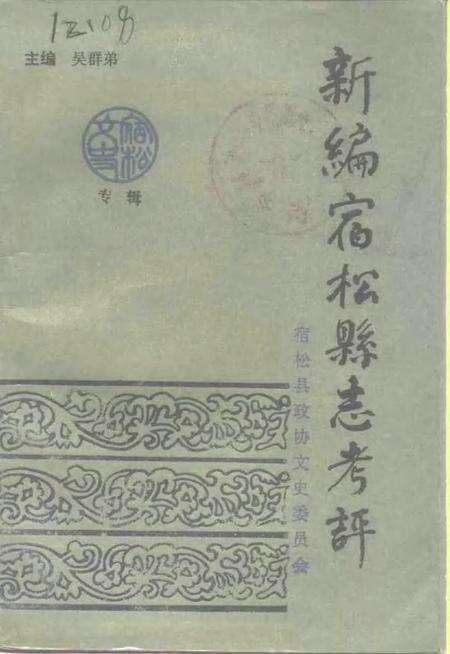 1210g
主编 吴群弟
宿松
文史
专辑
新编宿松縣志考評
宿松县政协文史委员会